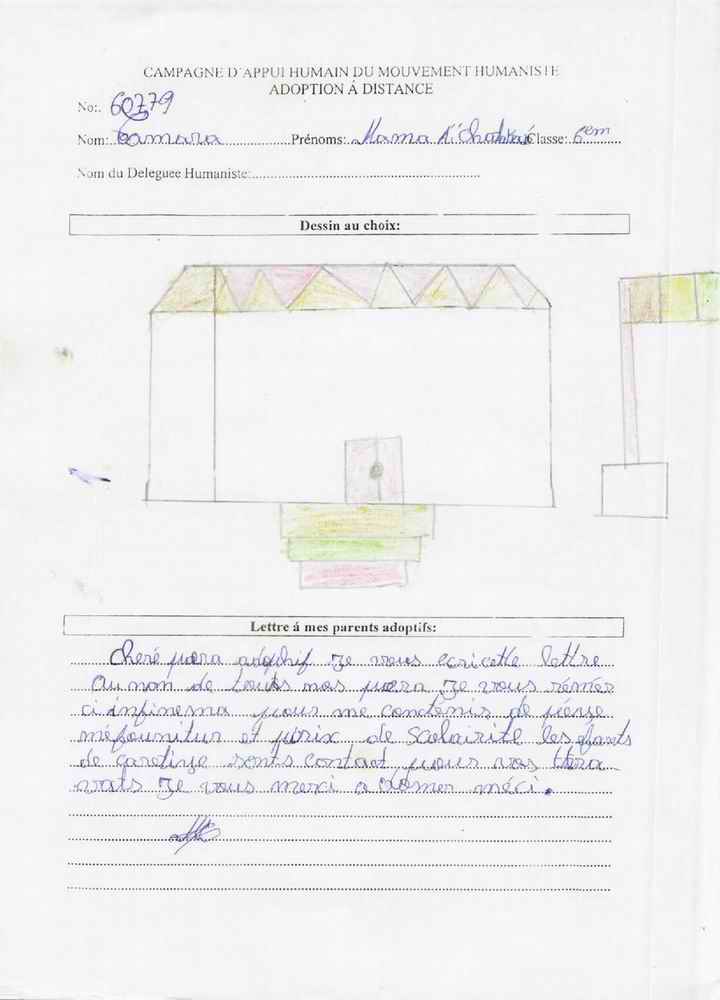 CAMPAGNE D'APPUI HUMAIN DU MOUVEMENT HUMANISTE
ADOPTION Á DISTANCE
No:. 60779
Nom:. Camara Prénoms: Mama Classe: 6em
Nom du Deleguee Humaniste:
Dessin au choix:
Lettre á mes parents adoptifs:
Cheré pæra adophif Je vous ecricette lettre
Au non de touts mos pæra Je vous rémer
ci infinema pour me contenis de péeye
méfounitur et pirix de Scolairité les efarets
de caretiye sonts contaet pour vos
vats Je vous merci a méci.